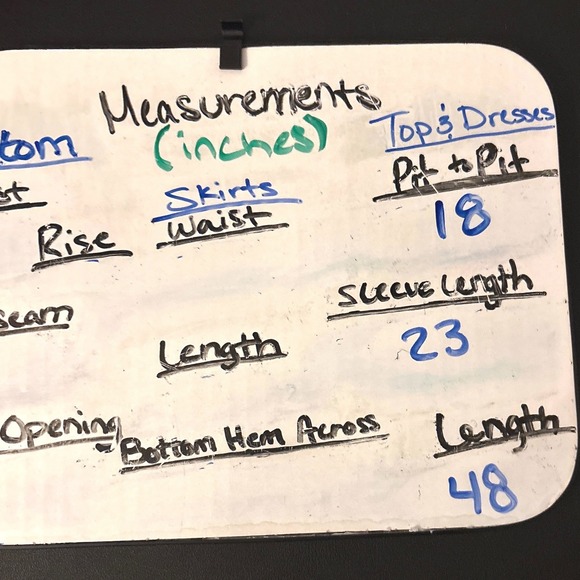 Measurements
(inches)
tom
st
Rise
seam
Opening
Skirts
Waist
Length
Bottom Hem Across
Top & Dresses
Pit to Pit
18
Sleeve Length
23
Length
48